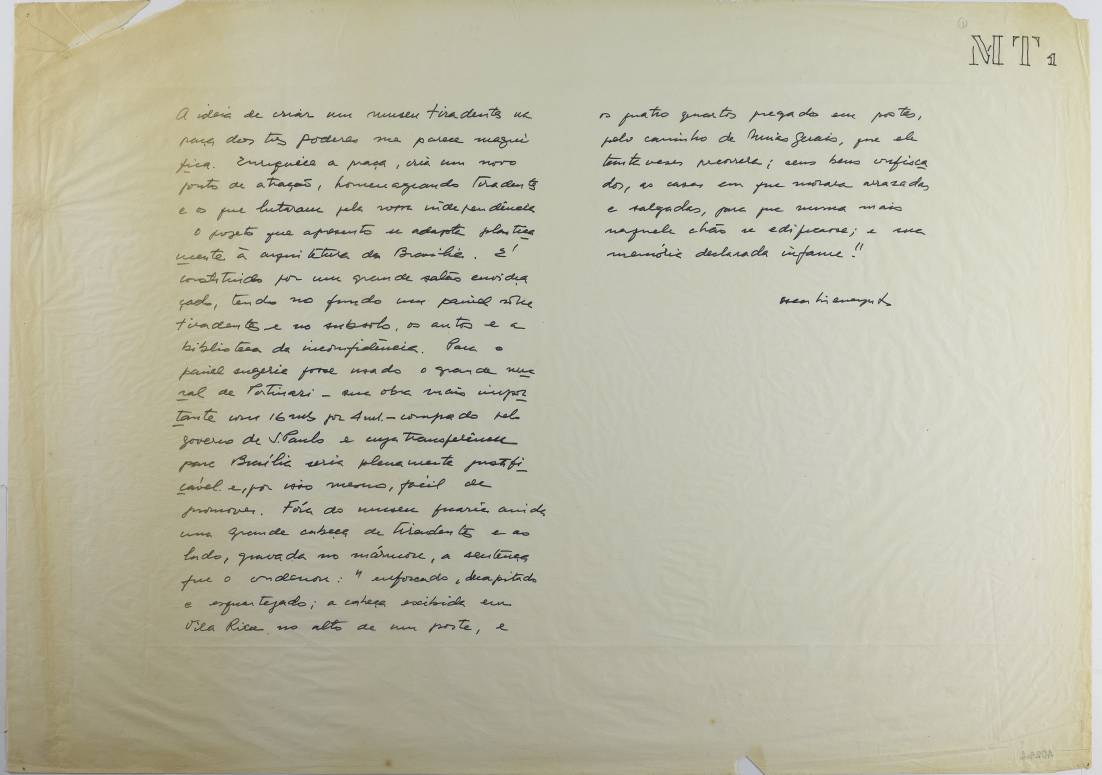 MT1
A ideia de criar um museu tiradentes na
praça dos tres poderes me parece magni
fica. Enriquece a praça, cria um novo
ponto de atração, homenageando Tiradentes
e os que lutaram pela nossa independência
O projeto que apresento se adapta plastica
mente à arquitetura de Brasilia. E'
constituido por um grande salão envidra
çado, tendo no fundo um painel sôbre
tiradentes e no subsolo, os autos e a
biblioteca da inconfidência. Para o
painel sugeria fosse usado o grande mu
ral de Portinari – sua obra mais impor
tante com 16 mts por 4 mt. – comprado pelo
governo de S. Paulo e cuja transferência
para Brasília seria plenamente justifi
cável e, por isso mesmo, fácil de
promover. Fóra do museu ficaria ainda
uma grande cabeça de tiradentes e ao
lado, gravada no mármore, a sentença
que o condenou: "enforcado, decapitado
e esquartejado; a cabeça exibida em
Vila Rica no alto de um poste, e
os quatro quartos pregados em postes,
pelo caminho de Minas Gerais, que ele
tantas vezes percorrera; seus bens confisca
dos, as casas em que morara arrasadas
e salgadas, para que nunca mais
naquele chão se edificasse; e sua
memória declarada infame!!
oscar niemeyer